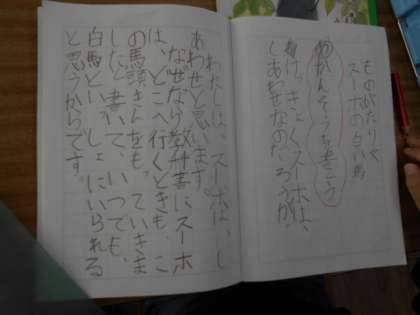 ものがたり文
スーホの白い馬
かんそうを書こう
けっきょくスーホは、
しあわせなのだろうか。
わたしは、スーホは、し
あわせと思います。
なぜなら教科書にスーホ
は、どこへ行くときも、こ
の馬頭きんをもっていきま
したと書いて、いつでも、
白馬といっしょにいられる
と思うからです。